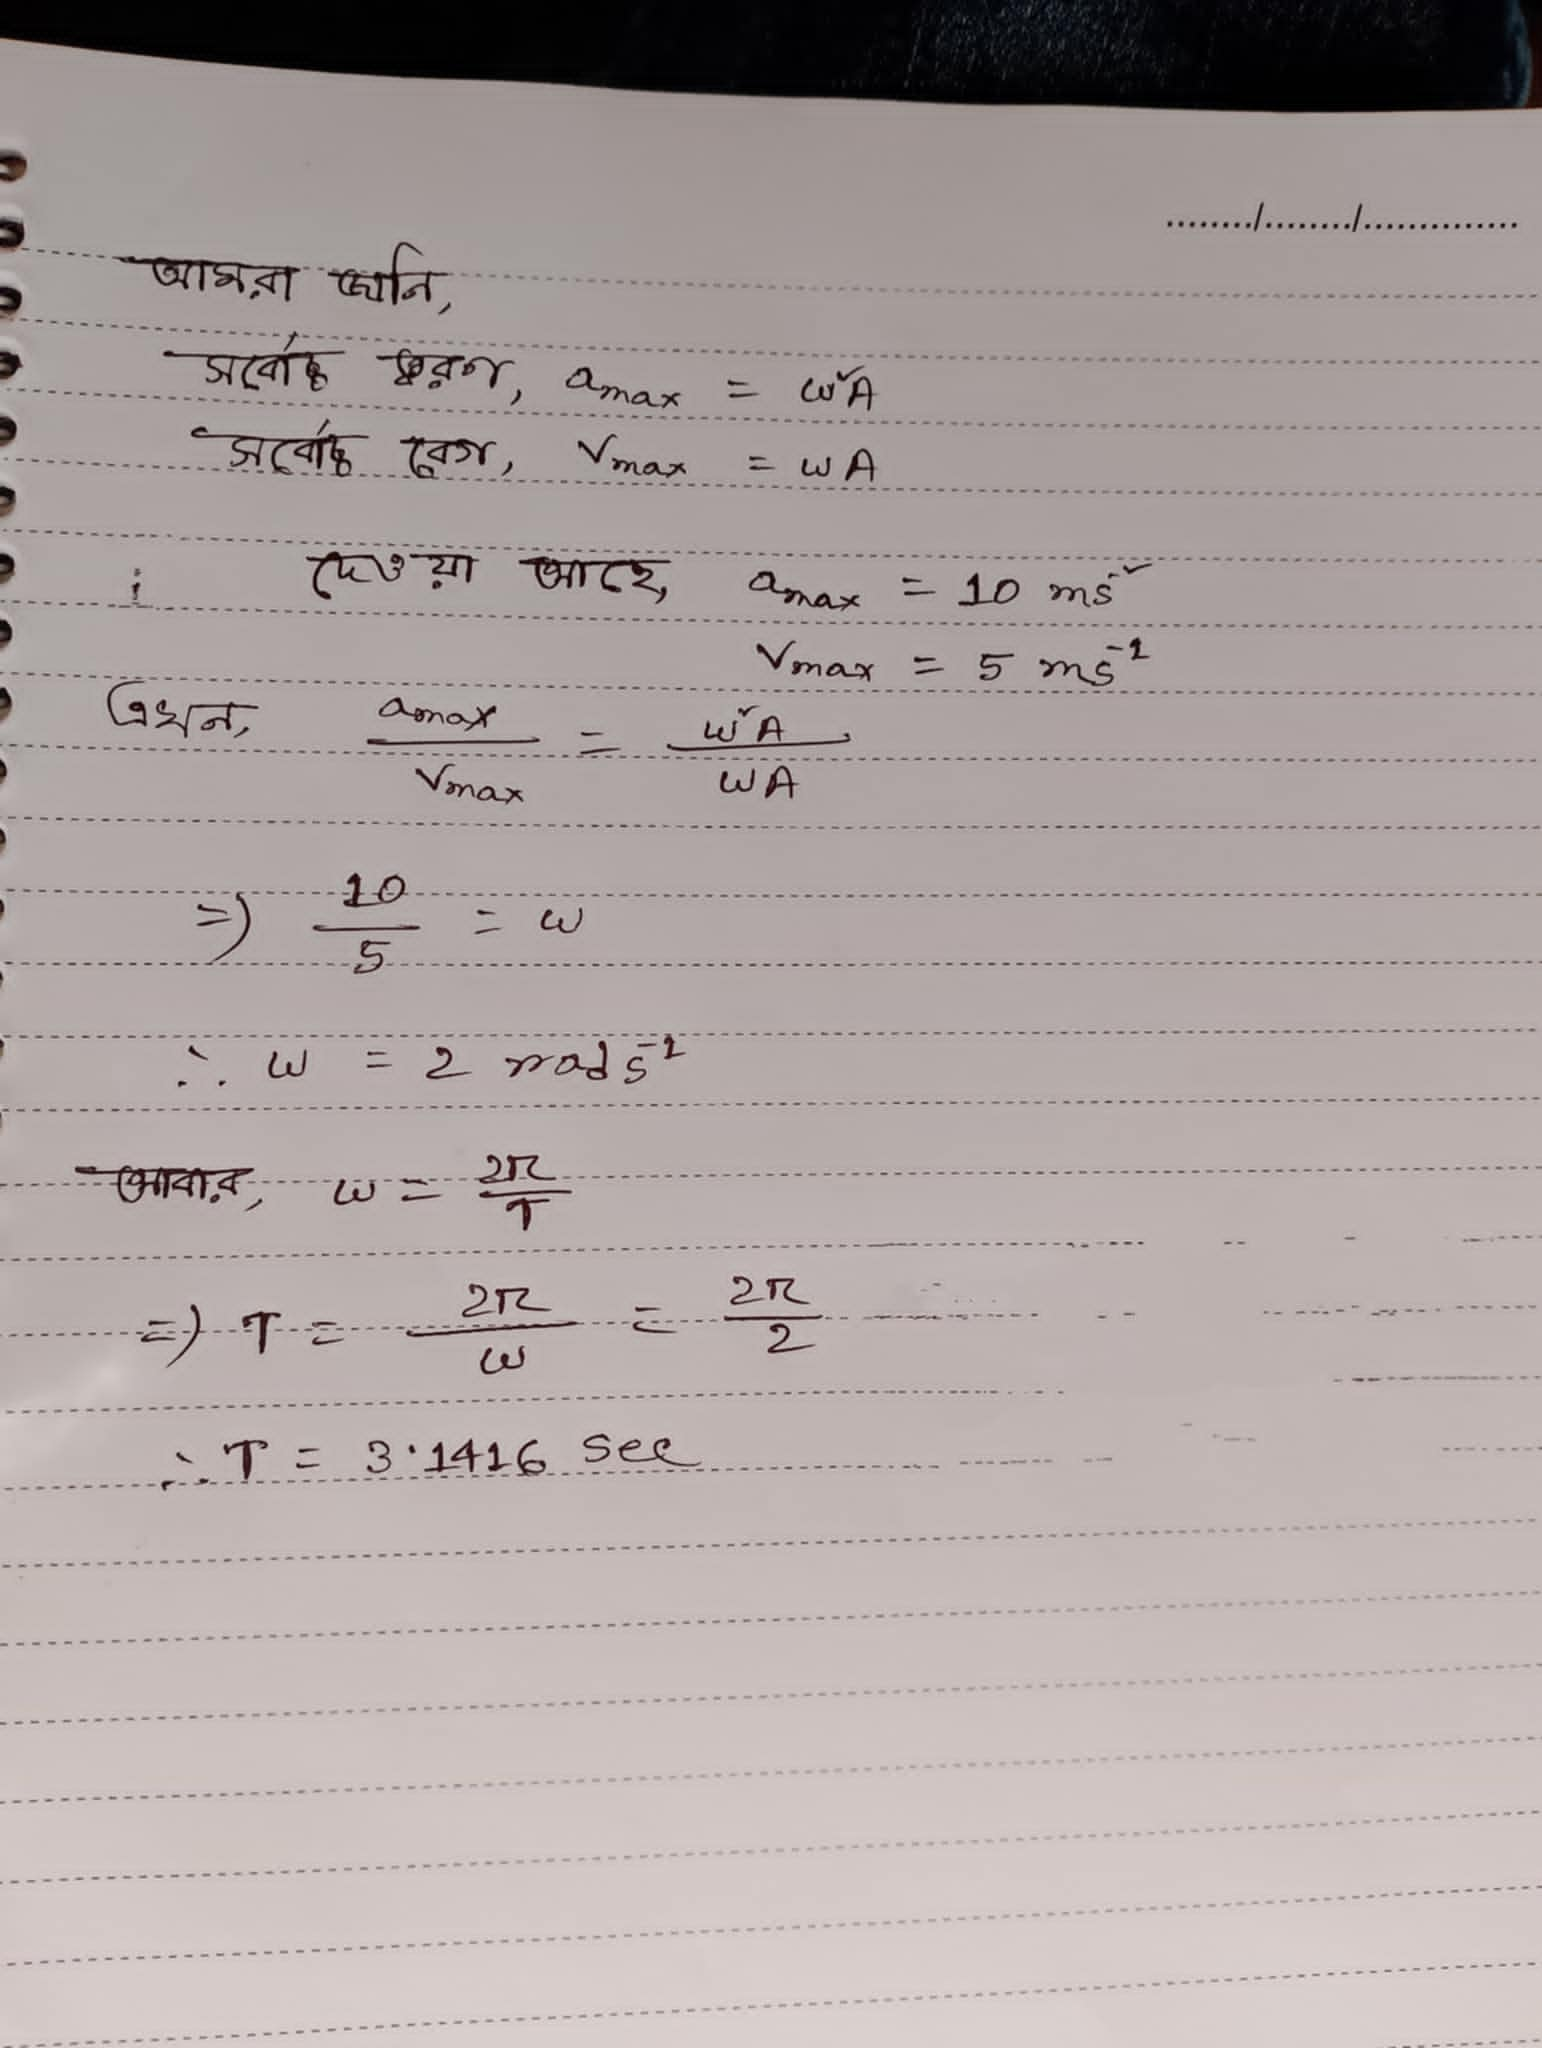 ......../......../..............
আমরা জানি,
সর্বোচ্চ ত্বরণ, amax = ω²A
সর্বোচ্চ বেগ, vmax = ωA
i দেওয়া আছে, amax = 10 ms⁻²
vmax = 5 ms⁻¹
এখন, amax / vmax = ω²A / ωA
=> 10/5 = ω
∴ ω = 2 rad s⁻¹
আবার, ω = 2π/T
=> T = 2π/ω = 2π/2
∴ T = 3.1416 sec